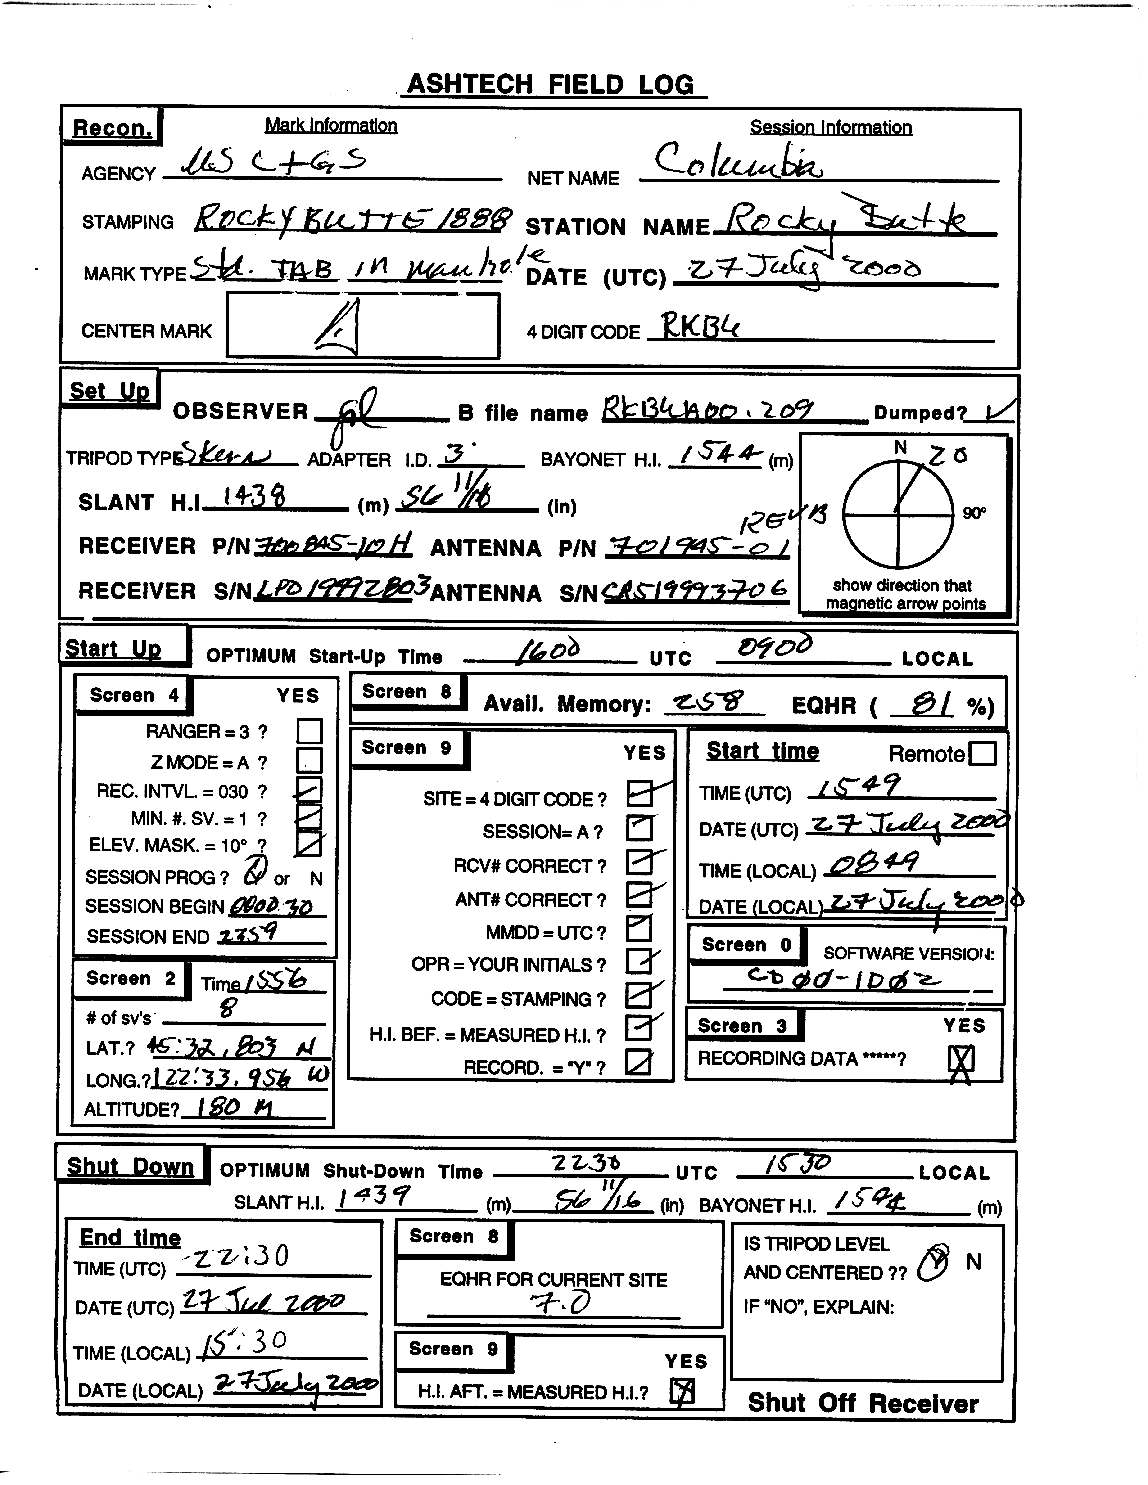 ASHTECH FIELD LOG
Recon. Mark Information Session Information
AGENCY US C+GS NET NAME Columbia
STAMPING ROCKY BUTTE 1888 STATION NAME Rocky Butte
MARK TYPE Std. TAB in manhole DATE (UTC) 27 July 2000
CENTER MARK 4 DIGIT CODE RKB4
Set Up
OBSERVER B file name RKB4A00.209 Dumped? ✓
TRIPOD TYPE ADAPTER I.D. 3 BAYONET H.I. 1544 (m) N 20
SLANT H.I. 1438 (m) 56 11/16 (in) 90°
REV B
RECEIVER P/N 700845-10H ANTENNA P/N 701945-01
show direction that
RECEIVER S/N LP019992803 ANTENNA S/N CR519993706
magnetic arrow points
Start Up OPTIMUM Start-Up Time 1600 UTC 0900 LOCAL
Screen 4 YES
RANGER = 3 ?
Z MODE = A ?
REC. INTVL. = 030 ?
MIN. #. SV. = 1 ?
ELEV. MASK. = 10° ?
SESSION PROG ? Y or N
SESSION BEGIN 0000 30
SESSION END 2359
Screen 2 Time 1556
# of sv's 8
LAT.? 45:32.803 N
LONG.? 122:33.956 W
ALTITUDE? 180 M
Screen 8 Avail. Memory: 258 EQHR ( 81 %)
Screen 9 YES
SITE = 4 DIGIT CODE ?
SESSION= A ?
RCV# CORRECT ?
ANT# CORRECT ?
MMDD = UTC ?
OPR = YOUR INITIALS ?
CODE = STAMPING ?
H.I. BEF. = MEASURED H.I. ?
RECORD. = "Y" ?
Start time Remote
TIME (UTC) 1549
DATE (UTC) 27 July 2000
TIME (LOCAL) 0849
DATE (LOCAL) 27 July 2000
Screen 0 SOFTWARE VERSION:
CD00-1D02
Screen 3 YES
RECORDING DATA *****? X
Shut Down OPTIMUM Shut-Down Time 2230 UTC 1530 LOCAL
SLANT H.I. 1439 (m) 56 11/16 (in) BAYONET H.I. 1544 (m)
End time
TIME (UTC) 22:30
DATE (UTC) 27 Jul 2000
TIME (LOCAL) 15:30
DATE (LOCAL) 27 July 2000
Screen 8
EQHR FOR CURRENT SITE
7.0
Screen 9 YES
H.I. AFT. = MEASURED H.I.? X
IS TRIPOD LEVEL
AND CENTERED ?? Y N
IF "NO", EXPLAIN:
Shut Off Receiver